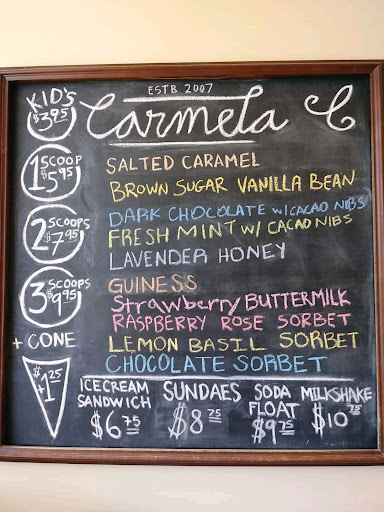 ESTB 2007
Carmela
KID'S
$3.95
1 SCOOP
$5.95
2 SCOOPS
$7.95
3 SCOOPS
$9.95
+ CONE
$1.25
SALTED CARAMEL
BROWN SUGAR VANILLA BEAN
DARK CHOCOLATE w/CACAO NIBS
FRESH MINT w/ CACAO NIBS
LAVENDER HONEY
GUINESS
Strawberry BUTTERMILK
RASPBERRY ROSE SORBET
LEMON BASIL SORBET
CHOCOLATE SORBET
ICECREAM
SANDWICH
$6.75
SUNDAES
$8.75
SODA
FLOAT
$9.75
MILKSHAKE
$10.75